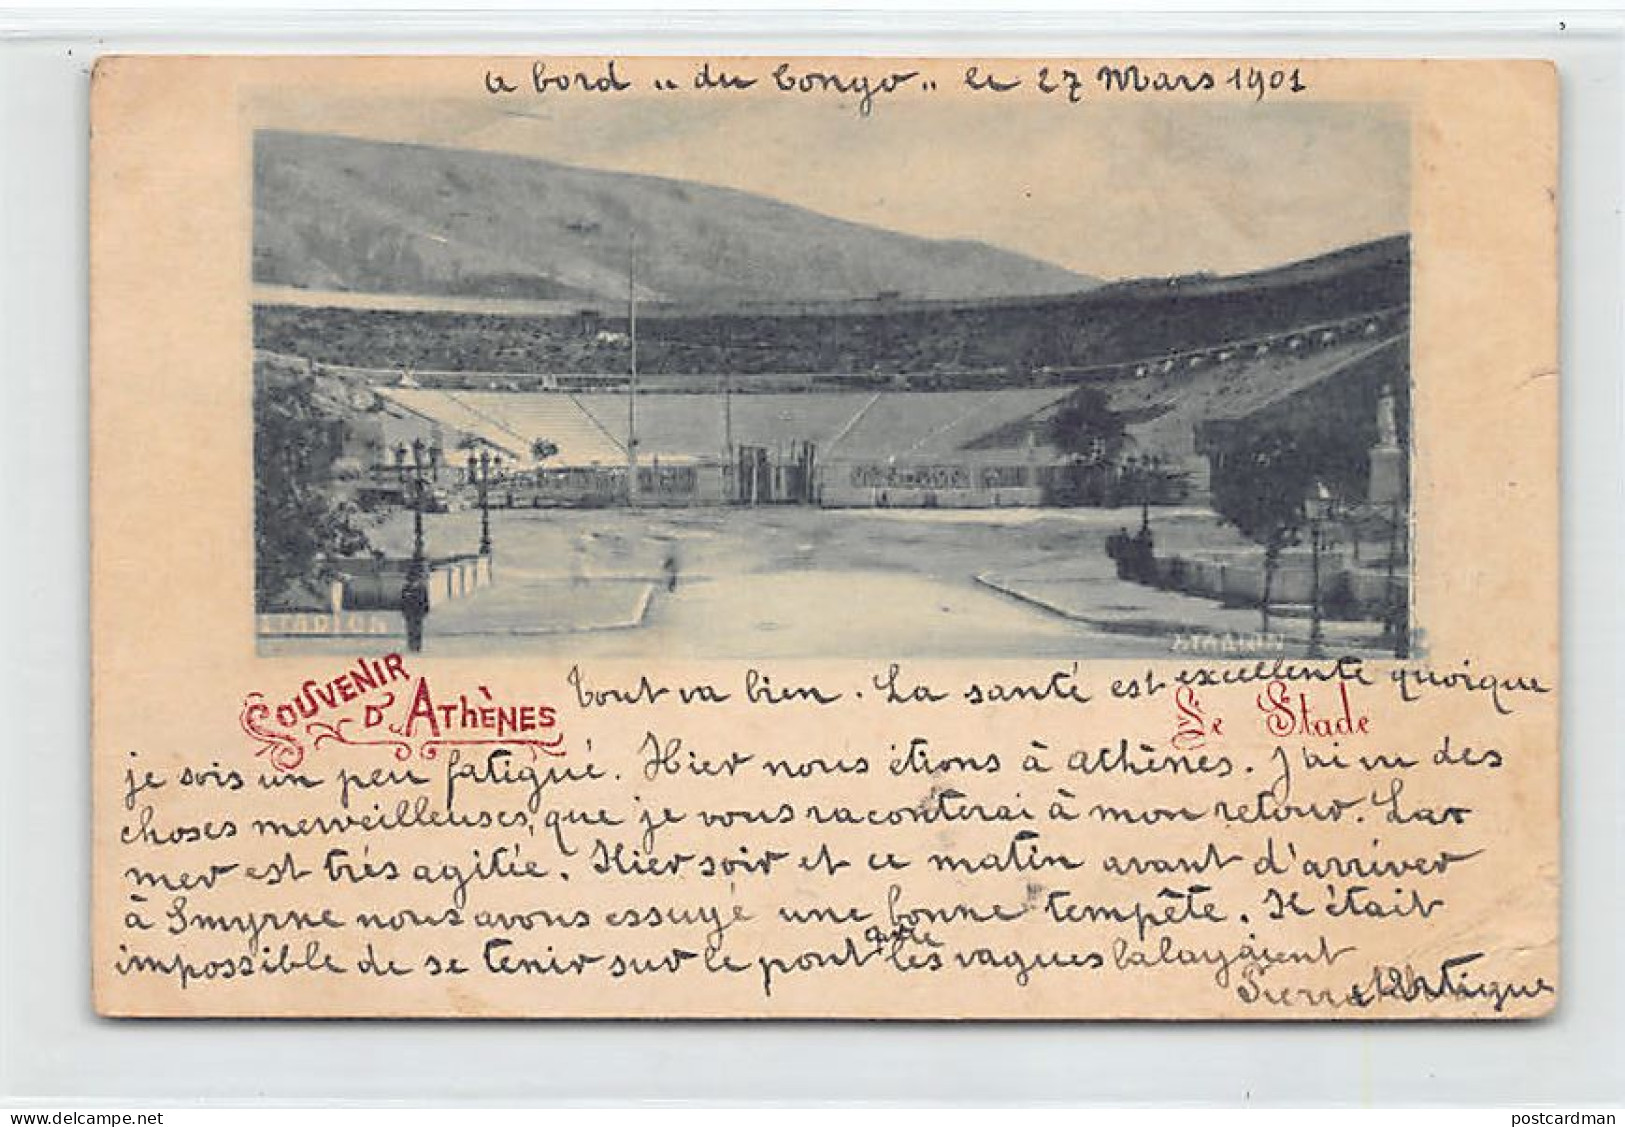 a bord " du Congo " le 27 Mars 1901
STADION
STADION
SOUVENIR D'ATHÈNES
Le Stade
Tout va bien. La santé est excellente quoique
je suis un peu fatigué. Hier nous étions à athènes. J'ai vu des
choses merveilleuses, que je vous raconterai à mon retour. La
mer est très agitée. Hier soir et ce matin avant d'arriver
à Smyrne nous avons essuyé une bonne tempête. Il était
impossible de se tenir sur le pont que les vagues balayaient
Pierre Artigue
www.delcampe.net/en_US/collectibles/postcardman
postcardman